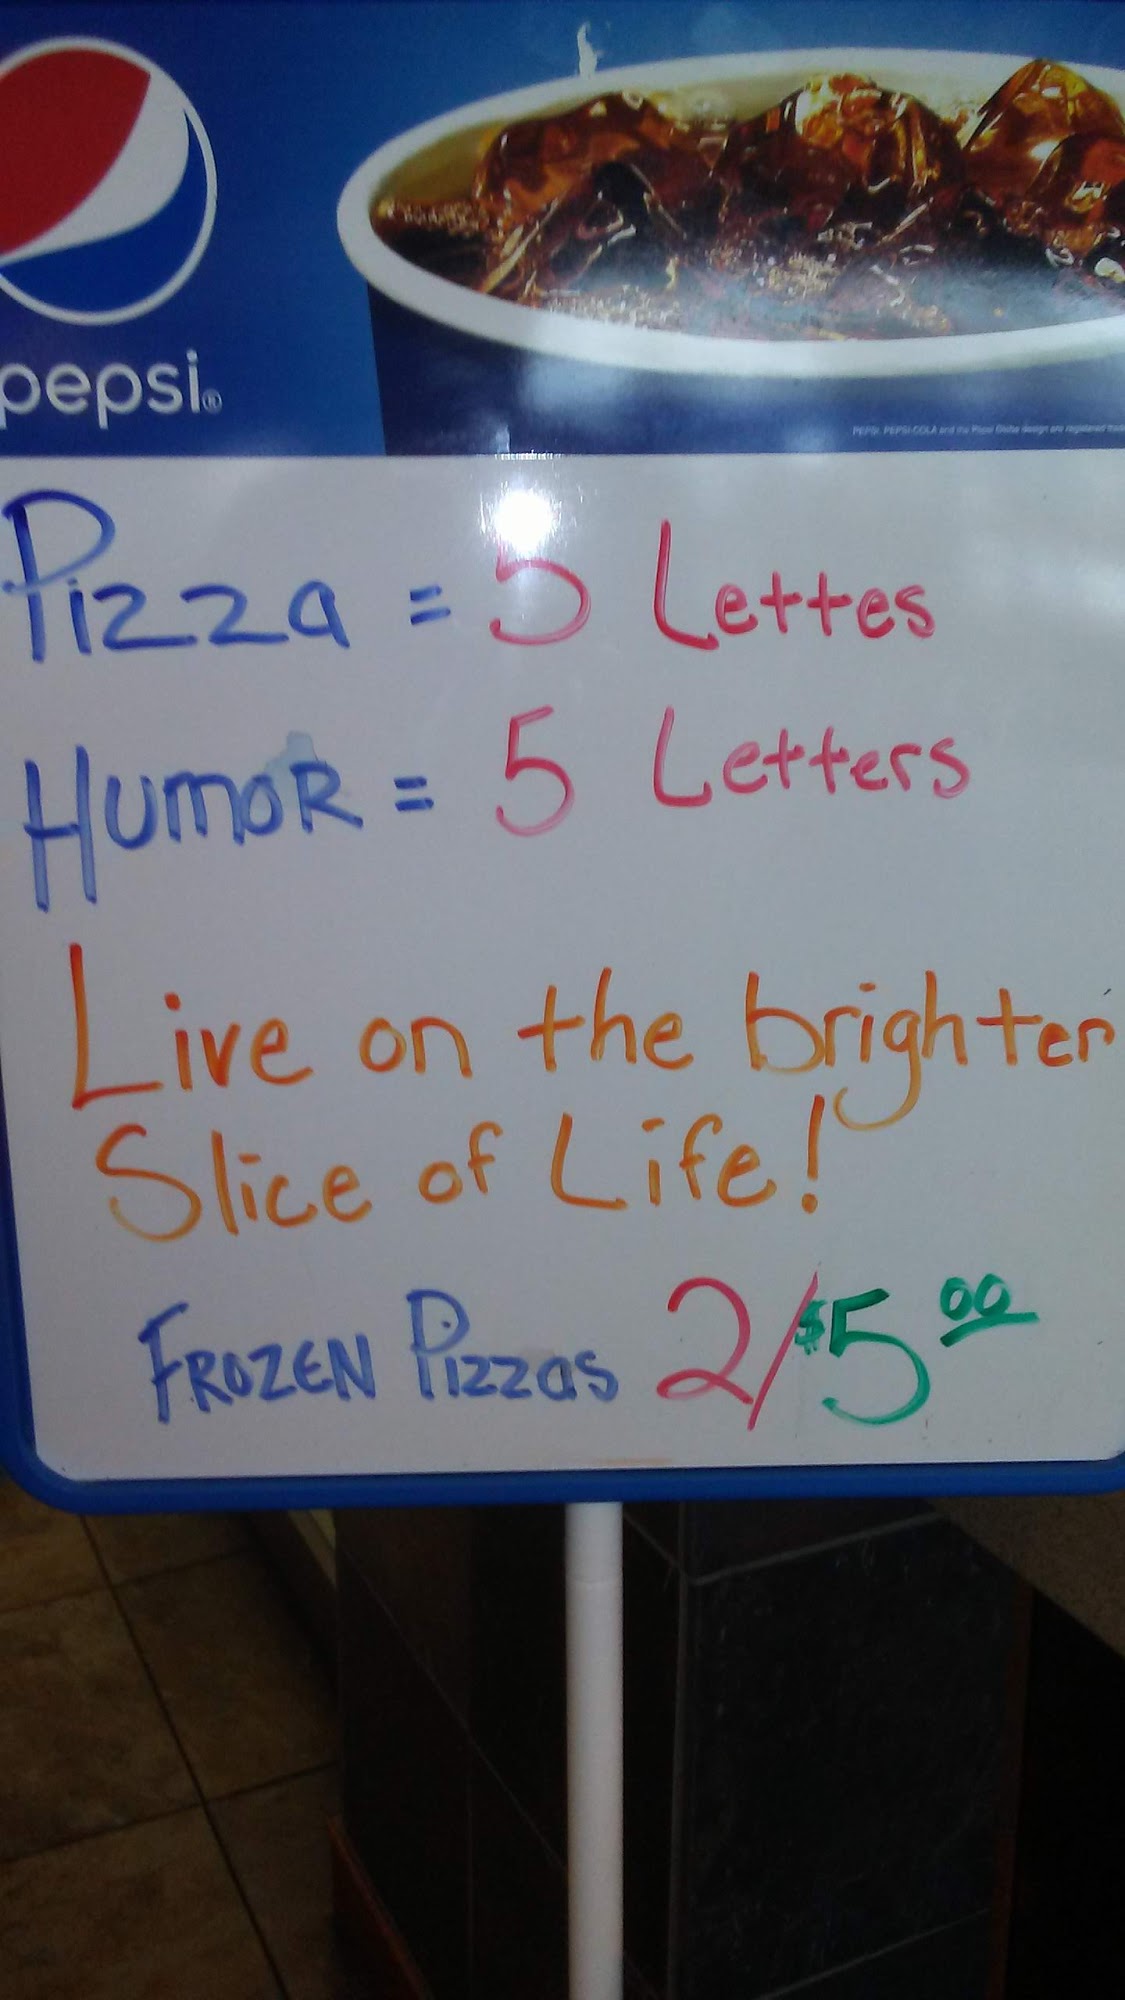 pepsi®
PEPSI, PEPSI-COLA and the Pepsi Globe design are registered
Pizza = 5 Lettes
Humor = 5 Letters
Live on the brighter
Slice of Life!
Frozen Pizzas 2/$5.00